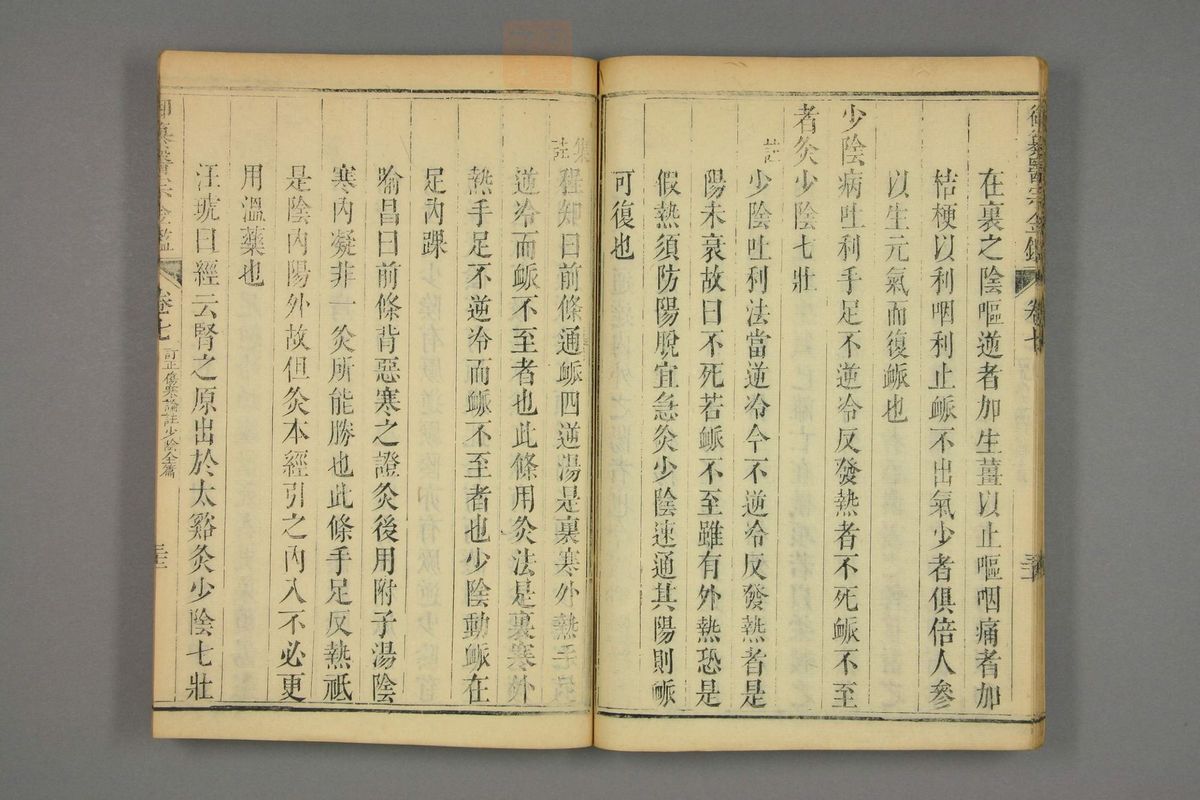 御纂醫宗金鑑
卷七
在裏之陰嘔逆者加生薑以止嘔咽痛者加
桔梗以利咽利止脈不出氣少者俱倍人參
以生元氣而復脈也
少陰病吐利手足不逆冷反發熱者不死脈不至
者灸少陰七壯
註
少陰吐利法當逆冷今不逆冷反發熱者是
陽未衰故曰不死若脈不至雖有外熱恐是
假熱須防陽脫宜急灸少陰速通其陽則脈
可復也
集註
程知曰前條通脈四逆湯是裏寒外熱手足
逆冷而脈不至者也此條用灸法是裏寒外
熱手足不逆冷而脈不至者也少陰動脈在
足內踝
喻昌曰前條背惡寒之證灸後用附子湯陰
寒內凝非一灸所能勝也此條手足反熱祇
是陰內陽外故但灸本經引之內入不必更
用溫藥也
汪琥曰經云腎之原出於太谿灸少陰七壯
御纂醫宗金鑑
卷七
訂正傷寒論註少陰全篇